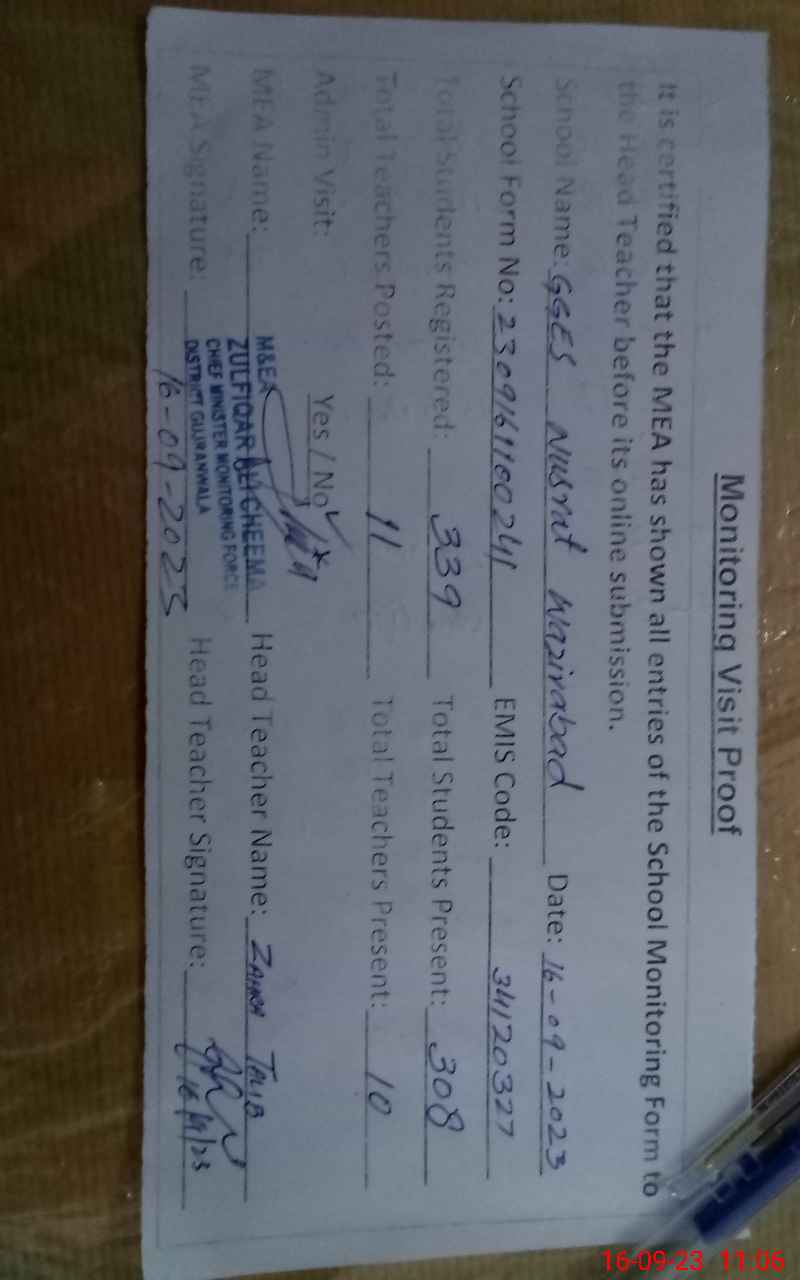 Monitoring Visit Proof
It is certified that the MEA has shown all entries of the School Monitoring Form to
the Head Teacher before its online submission.
School Name: GGES Nusrat Wazirabad Date: 16-09-2023
School Form No: 2309161160241 EMIS Code: 34120327
Total Students Registered: 339 Total Students Present: 308
Total Teachers Posted: 11 Total Teachers Present: 10
Admin Visit: Yes / No ✓
MEA Name: Head Teacher Name: ZAHRA TALIB
M&EA
ZULFIQAR ALI CHEEMA
CHIEF MINISTER MONITORING FORCE
DISTRICT GUJRANWALA
MEA Signature: 16-09-2023 Head Teacher Signature: 16/9/23
16-09-23 11:06